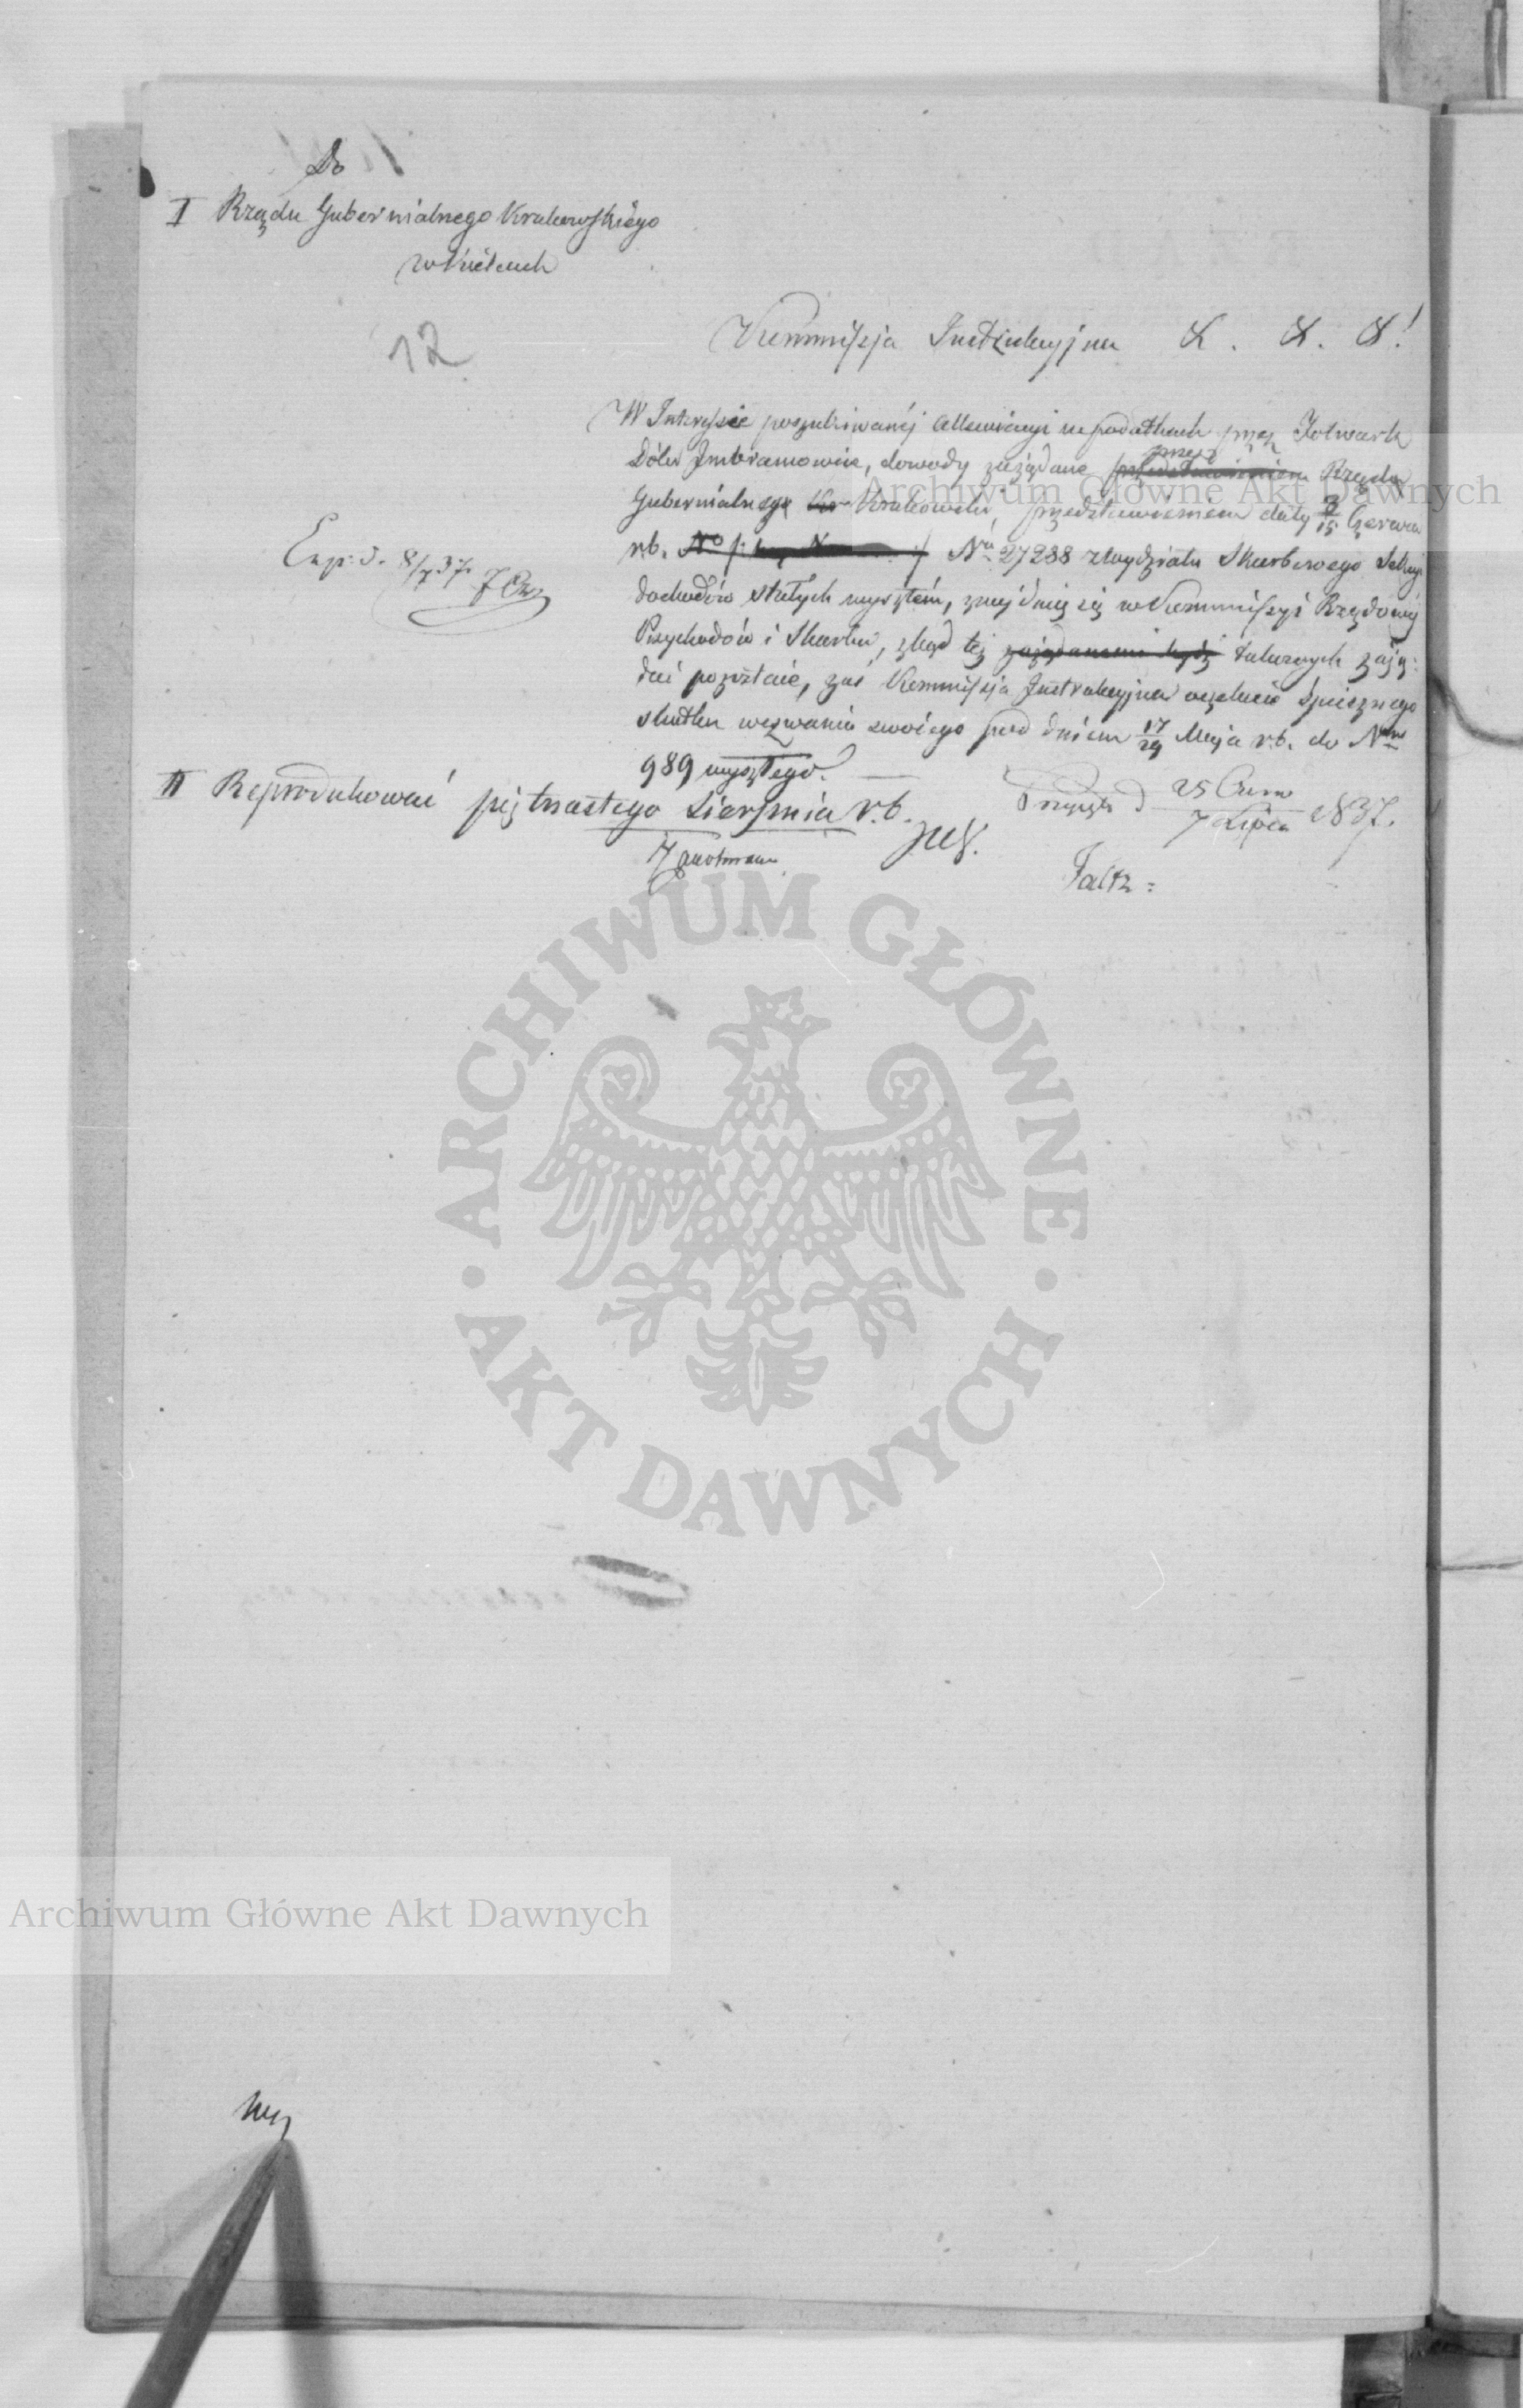 Do
I Rządu Gubernialnego Krakowskiego
w Kielcach
12
Kommissja Instrukcyjna & . & . &!
W Interessie poszukiwanéj allewiacyi w podatkach przez Folwark
Dóbr Imbramowice, dowody zażądane przez Rządu
Gubernialnego Krakowski, przedstawieniem daty 3/15 Czerwca
r.b. No 27288 z Wydziału Skarbowego Sekcyi
dochodów stałych wyszłém, znajdują się w Kommissyi Rządowéj
Przychodów i Skarbu, zkąd téż zażądanemi być takowych zażą-
dać pozostaie, zaś Kommissja Instrukcyjna oczekuie śpiesznego
skutku wezwania swoiego pod dniem 17/29 Maja r.b. do Nru
989 wyszłego.
Exp: d. 8/7 37.
II Reprodukować piętnastego Sierpnia r.b.
Przyięto d 25 Czerw / 7 Lipca 1837.
Faltz
Archiwum Główne Akt Dawnych
ARCHIWUM GŁÓWNE · AKT DAWNYCH ·
Archiwum Główne Akt Dawnych